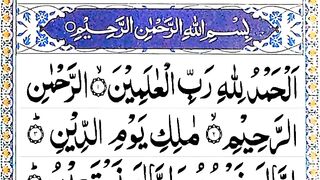 بِسْمِ اللهِ الرَّحْمٰنِ الرَّحِيْمِ
اَلْحَمْدُ لِلّٰهِ رَبِّ الْعٰلَمِيْنَ ۝ الرَّحْمٰنِ
الرَّحِيْمِ ۝ مٰلِكِ يَوْمِ الدِّيْنِ ۝